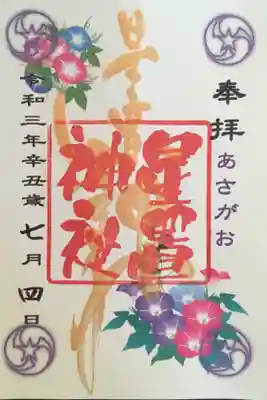 奉拝
あさがお
星置
神社
令和三年辛丑歳七月四日